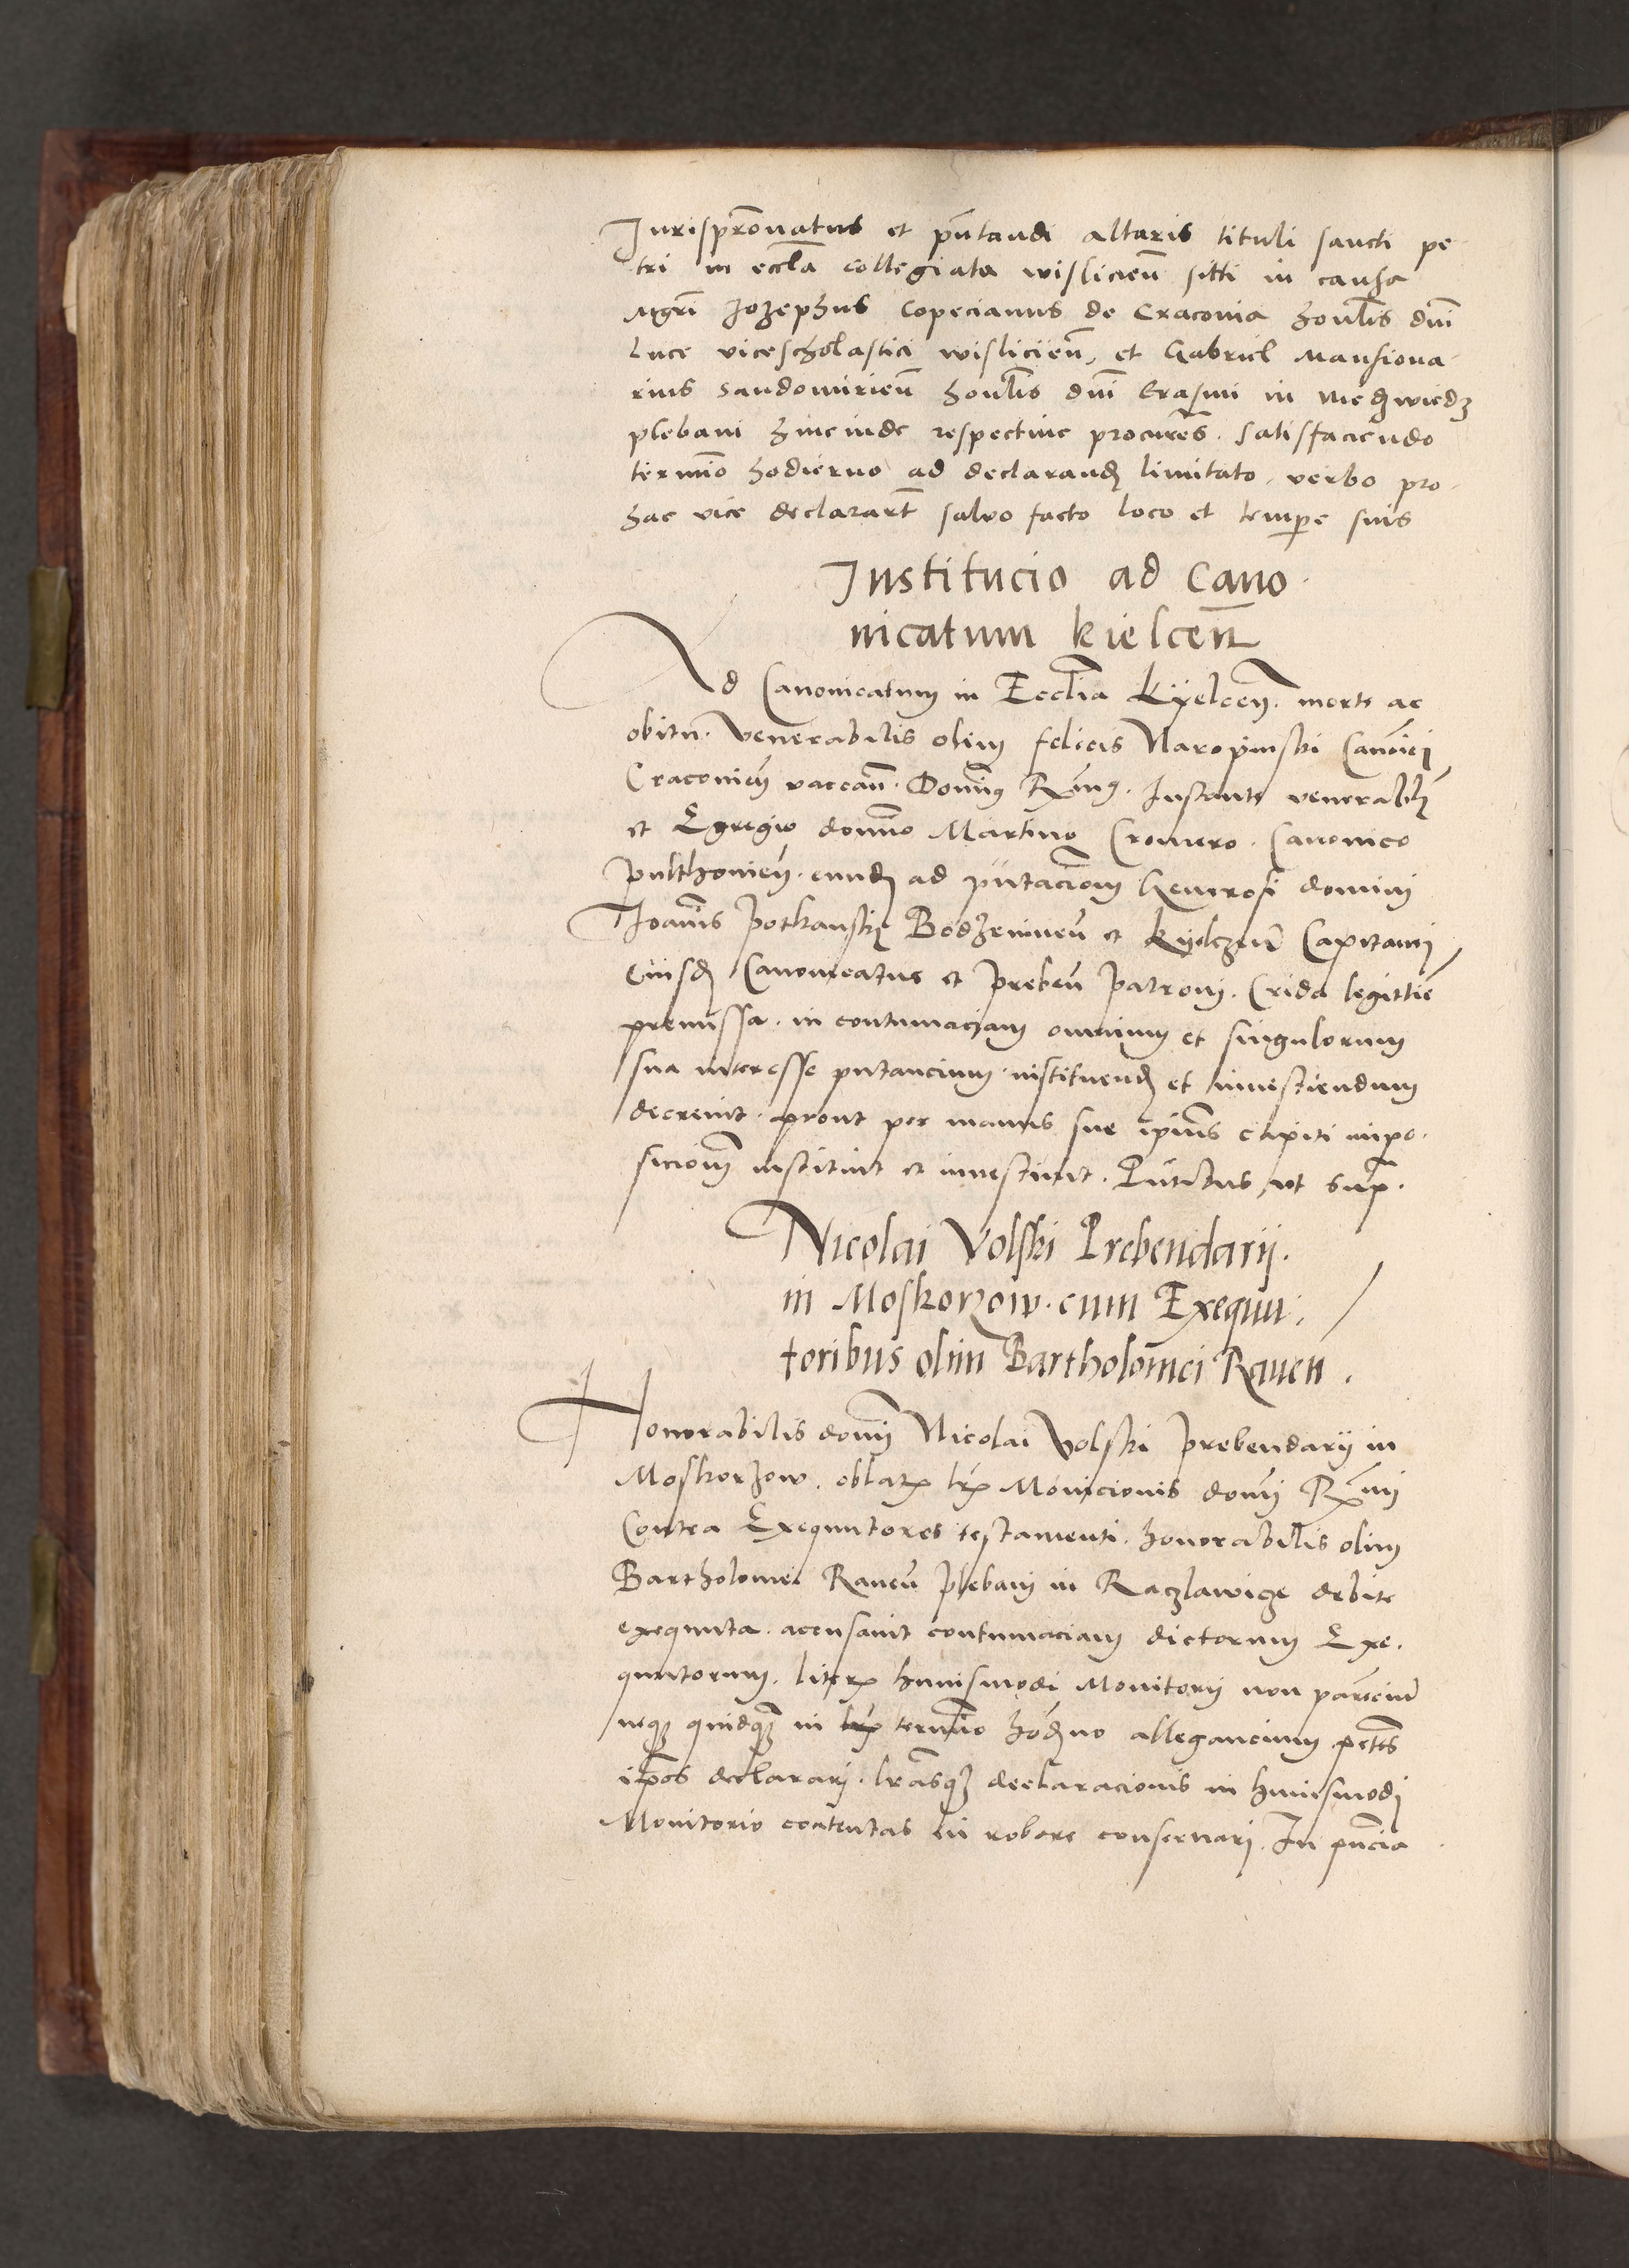 Jurisprōnatus et pn̄tandi altaris tituli sancti pe
tri in eccl̄a collegiata wislicien̄ sitti in causa
Mgrī Jozephus Copecianus de Craconia honl̄is dnī
Luce vicescholastici wislicien̄, et Gabriel Mansiona
rius Sandomirien̄ honl̄is dnī Erasmi in niedzwiedz
plebani hincinde respective procurēs. satisfaciendo
termīo hodierno ad declarand limitato. verbo pro
hac vice declarart̄ salvo facto loco et tempe suis
Institucio ad Cano
nicatum kielcen̄
Ad Canonicatum in Eccl̄ia Kyelcen̄. morte ac
obitu. Venerabilis olim felicis Naropinski Canōici
Craconien̄ vacan̄. Domīs R̄mus. Instante venerabil̄
et Egregio domīo Martino Cromero. Canonico
Pulthonien̄. eund ad pn̄tacīom Generosi domini
Joanīs Pothanski Bodzencinen̄ et Kyelczen̄ Capitanei
eiusd Canonicatus et preben̄ patroni. Crida legittiē
premissa. in contumaciam omnium et singulorum
sua interesse putancium. instituend et investiendum
decrevit. prout per manus sue ipīus capiti impo.
sicionē instituit et investivit. Pn̄tibus, ut sup̄.
Nicolai Volski Prebendarij.
in Moskorzow. cum Exequu
toribus olim Bartholomei Raven.
Honorabilis domī Nicolai Volski prebendarij in
Moskorzow. oblatꝝ lrꝝ Monicionis domī R̄mi
Contra Exequutores testamenti. honorabilis olim
Bartholomei Raven̄ plebani in Raczlawicze debite
exequuta. accusavit contumaciam dictorum Exe.
quutorum. literꝝ huiusmodi Monitorij non parēciū
neqꝫ quidqꝫ in termīo hodno allegancium petēs
ip̄os declarari. lrāsqꝫ declaracionis in huiusmodi
Monitorio contentas in robore conservari. In pn̄cia